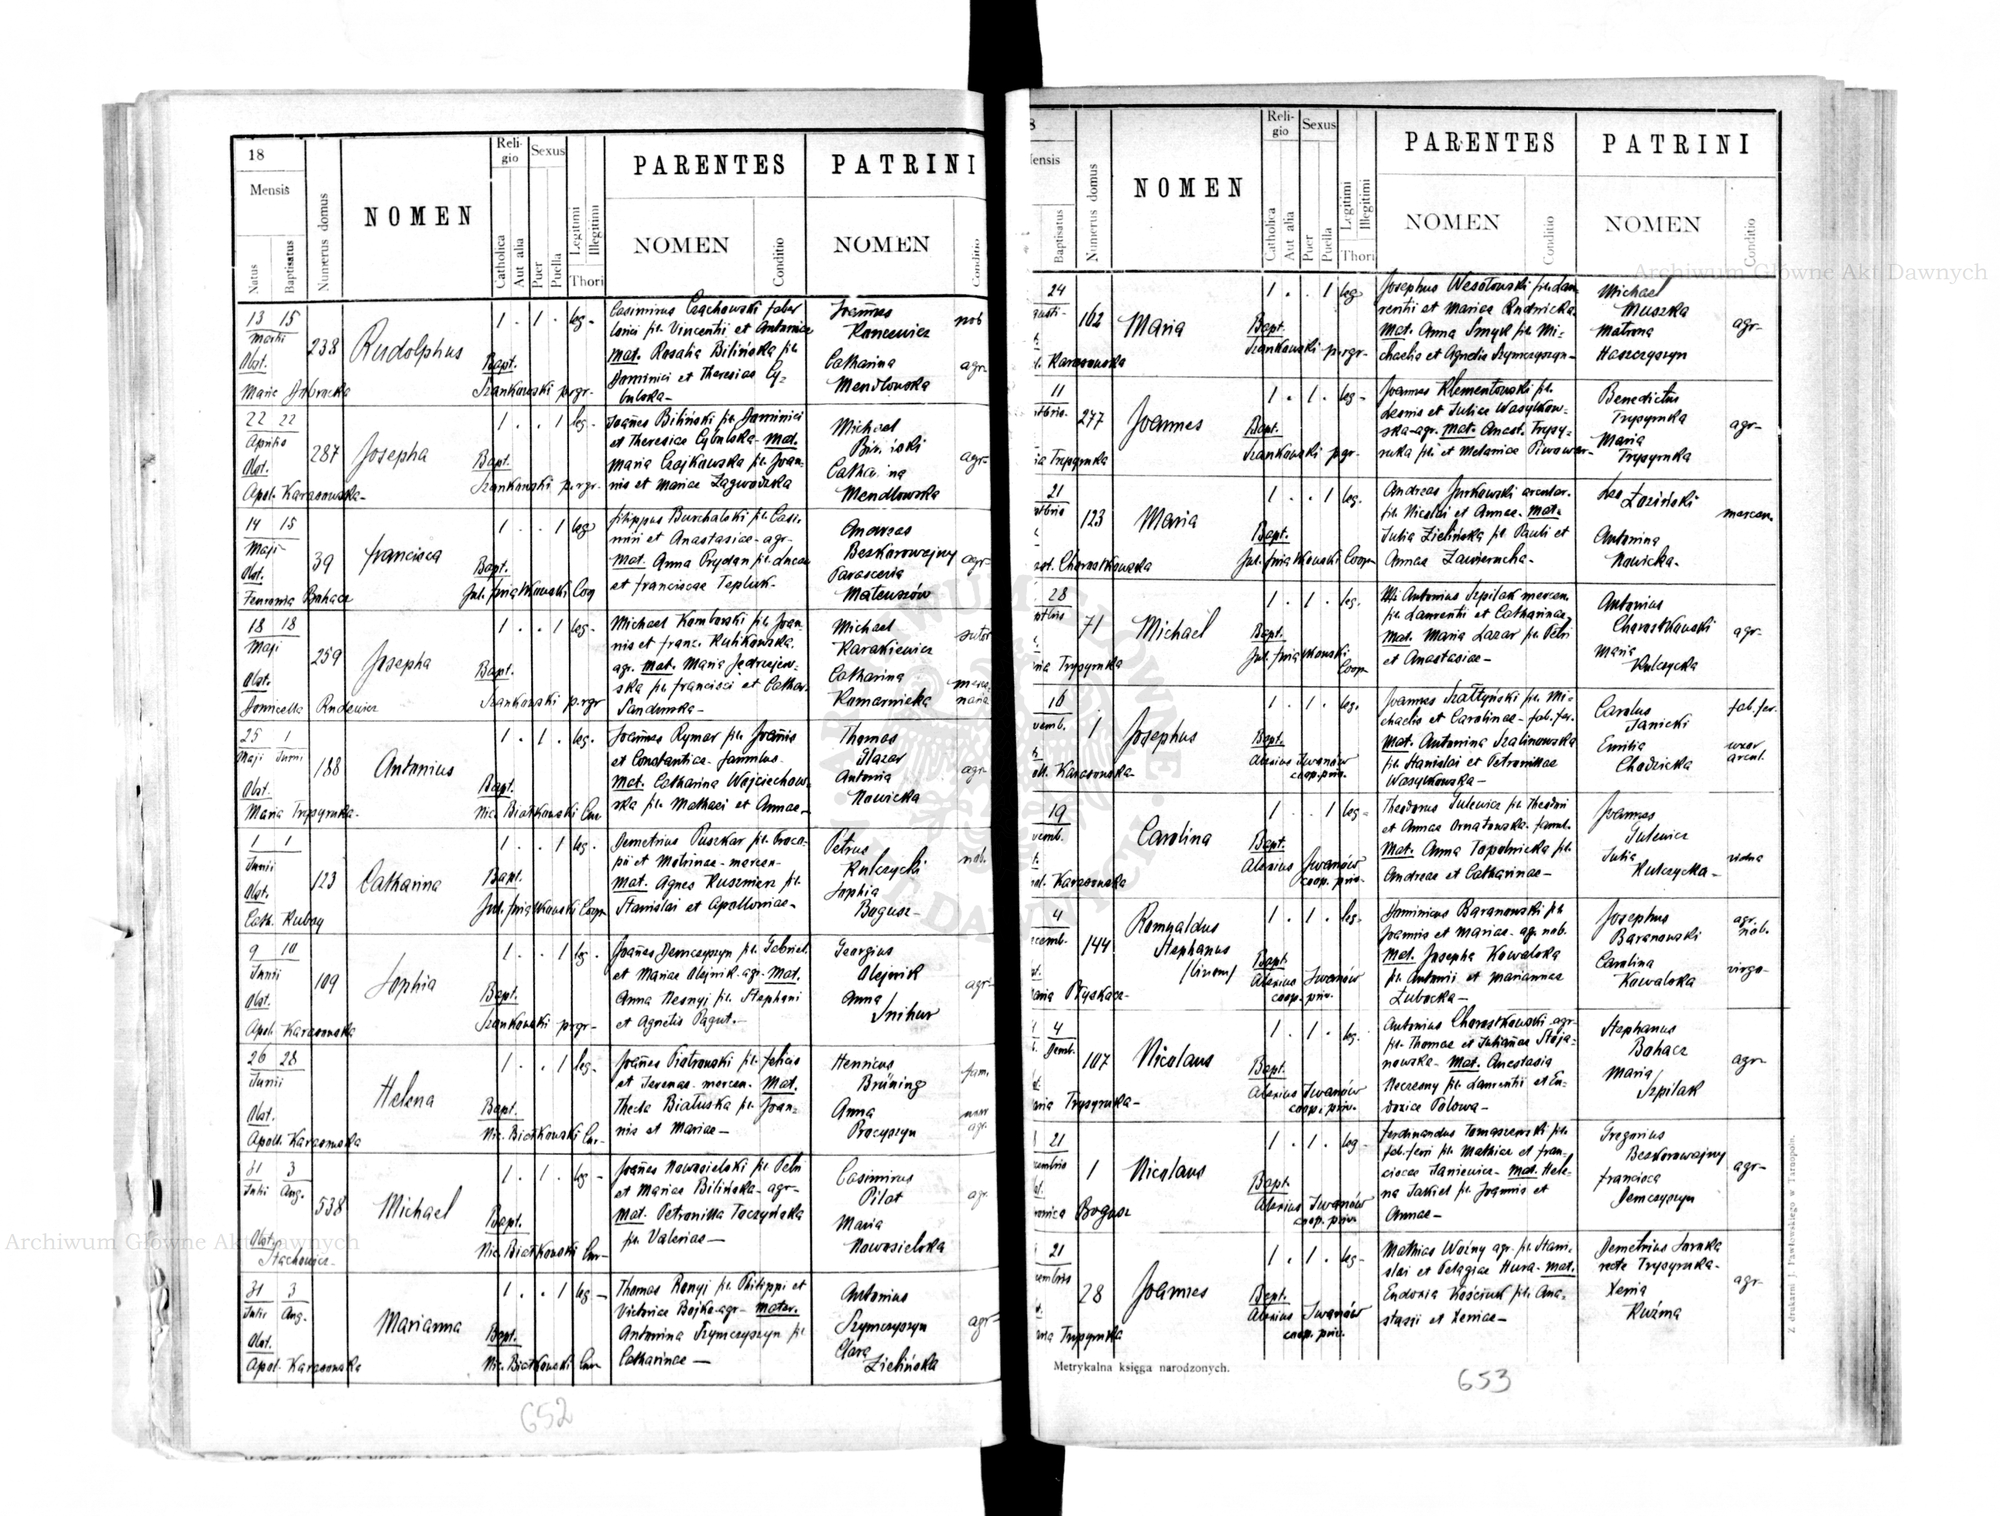 18
Mensis
Natus
Baptisatus
Numerus domus
NOMEN
Religio
Catholica
Aut alia
Sexus
Puer
Puella
Legitimi
Illegitimi
Thori
PARENTES
NOMEN
Conditio
PATRINI
NOMEN
Conditio
13 15
Martii
Obst.
238
Rudolphus
Bapt.
Szankowski p. rgr.
1 . 1 . leg.
Casimirus Czachowski faber
fil. Vincentii et Antoniae
Mat. Rosalia Bilińska fil.
Dominici et Theresiae Cy-
bulska
Joannes
Koncewicz
Catharina
Mendlowska
nob
agr.
22 22
Aprilis
Obst.
Apol. Karasowska
287
Josepha
Bapt.
Szankowski p. rgr.
1 . . 1 leg.
Joannes Biliński fil. Dominici
et Theresiae Cybulska. Mat.
Maria Czajkowska fil. Joan-
nis et Mariae Zagwodzka
Michael
Biliński
Catharina
Mendlowska
agr.
14 15
Maji
Obst.
Fenronia Bahacz
39
Francisca
Bapt.
Jul. Smiatkowski Coop
1 . . 1 leg
Filippus Burchalski fil. Casi-
miri et Anastasiae agr.
Mat. Anna Prydan fil. Lucae
et Franciscae Tepluk.
Andreas
Bezkorowajny
Parasceria
Mateuszów
agr.
18 18
Maji
Obst.
Domicella Rudewicz
259
Josepha
Bapt.
Szankowski p. rgr
1 . . 1 leg.
Michael Komborski fil. Joan-
nis et Franc. Kulikowska.
agr. Mat. Maria Jędrzejew-
ska fil. Francisci et Cathar.
Sandurska
Michael
Karakiewicz
Catharina
Komarnicka
sutor
25 1
Maji Junii
Obst.
Maria Trysyrnka
188
Antonius
Bapt.
Nic. Białkowski Cur
1 . 1 . leg.
Joannes Rymar fil. Joannis
et Constantia. famulus
Mat. Catharina Wojciechow-
ska fil. Mathaei et Annae
Thomas
Hazar
Antonia
Nowicka
agr.
1 1
Junii
Obst.
Cath. Kubay
123
Catharina
Bapt.
Jul. Smiatkowski Coop
1 . . 1 leg.
Demetrius Puszkar fil. Proco-
pii et Motrinae mercen.
Mat. Agnes Kusznierz fil.
Stanislai et Apolloniae
Petrus
Kulczycki
Sophia
Bogusz
nob.
9 10
Junii
Obst.
Apol. Karasowska
109
Sophia
Bapt.
Szankowski p. rgr
1 . . 1 leg.
Joannes Demczyszyn fil. Gabriel.
et Mariae Olejnik agr. Mat.
Anna Nesnyj fil. Stephani
et Agnetis Pagut.
Georgius
Olejnik
Anna
Snihur
agr.
26 28
Junii
Obst.
Apoll. Karasowska
Helena
Bapt.
Nic. Białkowski Cur
1 . . 1 leg.
Joannes Piotrowski fil. Felicis
et Serenae. mercen. Mat.
Thecla Białuska fil. Joan-
nis et Mariae
Henricus
Brüning
Anna
Procyszyn
fam.
uxor
agr.
31 3
Julii Aug.
Obst.
Stachowicz
538
Michael
Bapt.
Nic. Białkowski Cur
1 . 1 . leg
Joannes Nowosielski fil. Petri
et Mariae Bilińska agr
Mat. Petronilla Taczyńska
fil. Valeriae
Casimirus
Pilat
Maria
Nowosielska
agr.
31 3
Julii Aug.
Obst.
Apol. Karasowska
Marianna
Bapt.
Nic. Białkowski Cur
1 . . 1 leg
Thomas Ronyj fil. Philippi et
Victoriae Bojko agr. mater.
Antonina Szymczyszyn fil
Catharinae
Antonius
Szymczyszyn
Clara
Zielińska
agr
652
8
Mensis
Baptisatus
Numerus domus
NOMEN
Religio
Catholica
Aut alia
Sexus
Puer
Puella
Legitimi
Illegitimi
Thori
PARENTES
NOMEN
Conditio
PATRINI
NOMEN
Conditio
24
Karasowska
162
Maria
Bapt.
Szankowski p. rgr.
1 . . 1 leg
Josephus Wesołowski fil. Lau-
rentii et Mariae Rudnicka
Mat. Anna Smyk fil. Mi-
chaelis et Agnetis Szymczyszyn
Michael
Muszka
Matrona
Haszczyszyn
agr.
11
Trysyrnka
277
Joannes
Bapt.
Szankowski p. rgr.
1 . 1 . leg
Joannes Klementowski fil.
Leonis et Juliae Wasylkow-
ska agr. Mat. Anast. Trysy-
rnka fil. et Melaniae Piwowar
Benedictus
Trysyrnka
Maria
Trysyrnka
agr
21
Chorostkowska
123
Maria
Bapt.
Jul. Smiatkowski Coop
1 . . 1 leg.
Andreas Jurkowski arcular.
fil. Nicolai et Annae. Mat.
Julia Zielińska fil. Pauli et
Annae Zawierucha
Leo Łoziński
Antonina
Nowicka
mercen.
28
Trysyrnka
71
Michael
Bapt.
Jul. Smiatkowski
Coop
1 . 1 . leg.
Antonius Szpilak mercen.
fil. Laurentii et Catharinae
Mat. Maria Lazar fil. Petri
et Anastasiae
Antonius
Chorostkowski
Maria
Kulczycka
agr.
16
Karasowska
1
Josephus
Bapt.
Alexius Iwanów
coop. priv.
1 . 1 . leg.
Joannes Szałtyński fil. Mi-
chaelis et Carolinae fab. fer.
Mat. Antonina Szalinowska
fil. Stanislai et Petronillae
Wasylkowska
Carolus
Janicki
Emilia
Chodzicka
fab. fer.
uxor
arcul.
19
Karasowska
Carolina
Bapt.
Alexius Iwanów
coop. priv.
1 . . 1 leg
Theodorus Julewicz fil. Theodori
et Annae Ornatowska. famul.
Mat. Anna Topolnicka fil.
Andreae et Catharinae
Joannes
Julewicz
Julia
Kulczycka
vidua
4
Ptyskacz
144
Romualdus
Stephanus
(binom)
Bapt.
Alexius Iwanów
coop. priv.
1 . 1 . leg.
Dominicus Baranowski fil.
Joannis et Mariae agr. nob.
Mat. Josepha Kowalska
fil. Antonii et Mariannae
Łubocka
Josephus
Baranowski
Carolina
Kowalska
agr.
nob.
virgo
4
Trysyrnka
107
Nicolaus
Bapt.
Alexius Iwanów
coop. priv.
1 . 1 . leg.
Antonius Chorostkowski agr
fil. Thomae et Julianae Stoja-
nowska. Mat. Anastasia
Neczesny fil. Laurentii et Eu-
doxiae Polowa
Stephanus
Bahacz
Maria
Szpilak
agr
21
Bogusz
1
Nicolaus
Bapt.
Alexius Iwanów
coop. priv.
1 . 1 . leg
Ferdinandus Tomaszewski fil.
fab. ferri fil. Mathiae et Fran-
ciscae Janiewicz. Mat. Hele-
na Jakiel fil. Joannis et
Annae
Gregorius
Bezkorowajny
Francisca
Demczyszyn
agr
21
Trysyrnka
28
Joannes
Bapt.
Alexius Iwanów
coop. priv.
1 . 1 . leg
Mathias Woźny agr. fil. Stani-
slai et Pelagiae Hura. Mat.
Eudoxia Kościuk fil. Ana-
stasii et Xeniae
Demetrius Sornka
recte Trysyrnka
Xenia
Kuźma
agr
Metrykalna księga narodzonych.
Z drukarni J. Pawłowskiego w Tarnopolu.
653
Archiwum Główne Akt Dawnych
Archiwum Główne Akt Dawnych